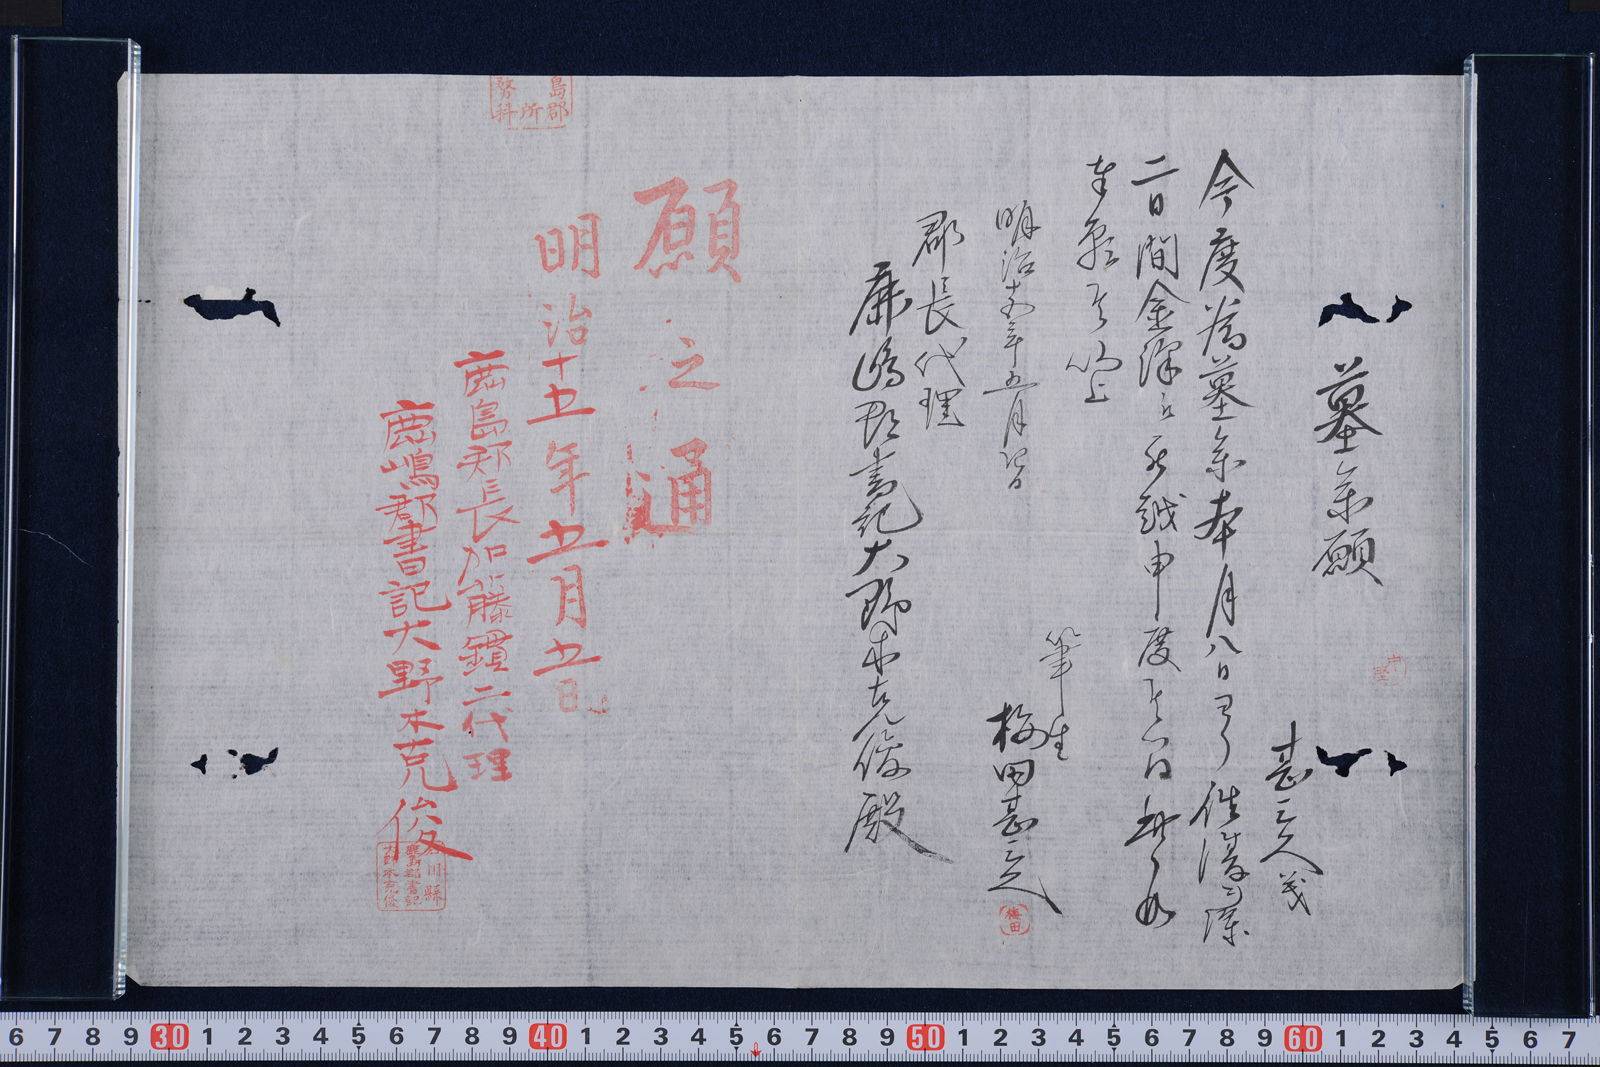 墓参願
甚三久義
今度為墓参本月八日ヨリ往復ヲ除
二日間金沢ヱ罷越申度候間此段
奉願候以上
明治十五年五月五日
筆生
梅田甚三久
梅田
郡長代理
鹿嶋郡書記大野木克俊殿
願之通
明治十五年五月五日
鹿島郡長加藤鑽二代理
鹿嶋郡書記大野木克俊
石川縣
鹿島郡書記
大野木克俊
島郡
所
務科
6 7 8 9 30 1 2 3 4 5 6 7 8 9 40 1 2 3 4 5 6 7 8 9 50 1 2 3 4 5 6 7 8 9 60 1 2 3 4 5 6 7